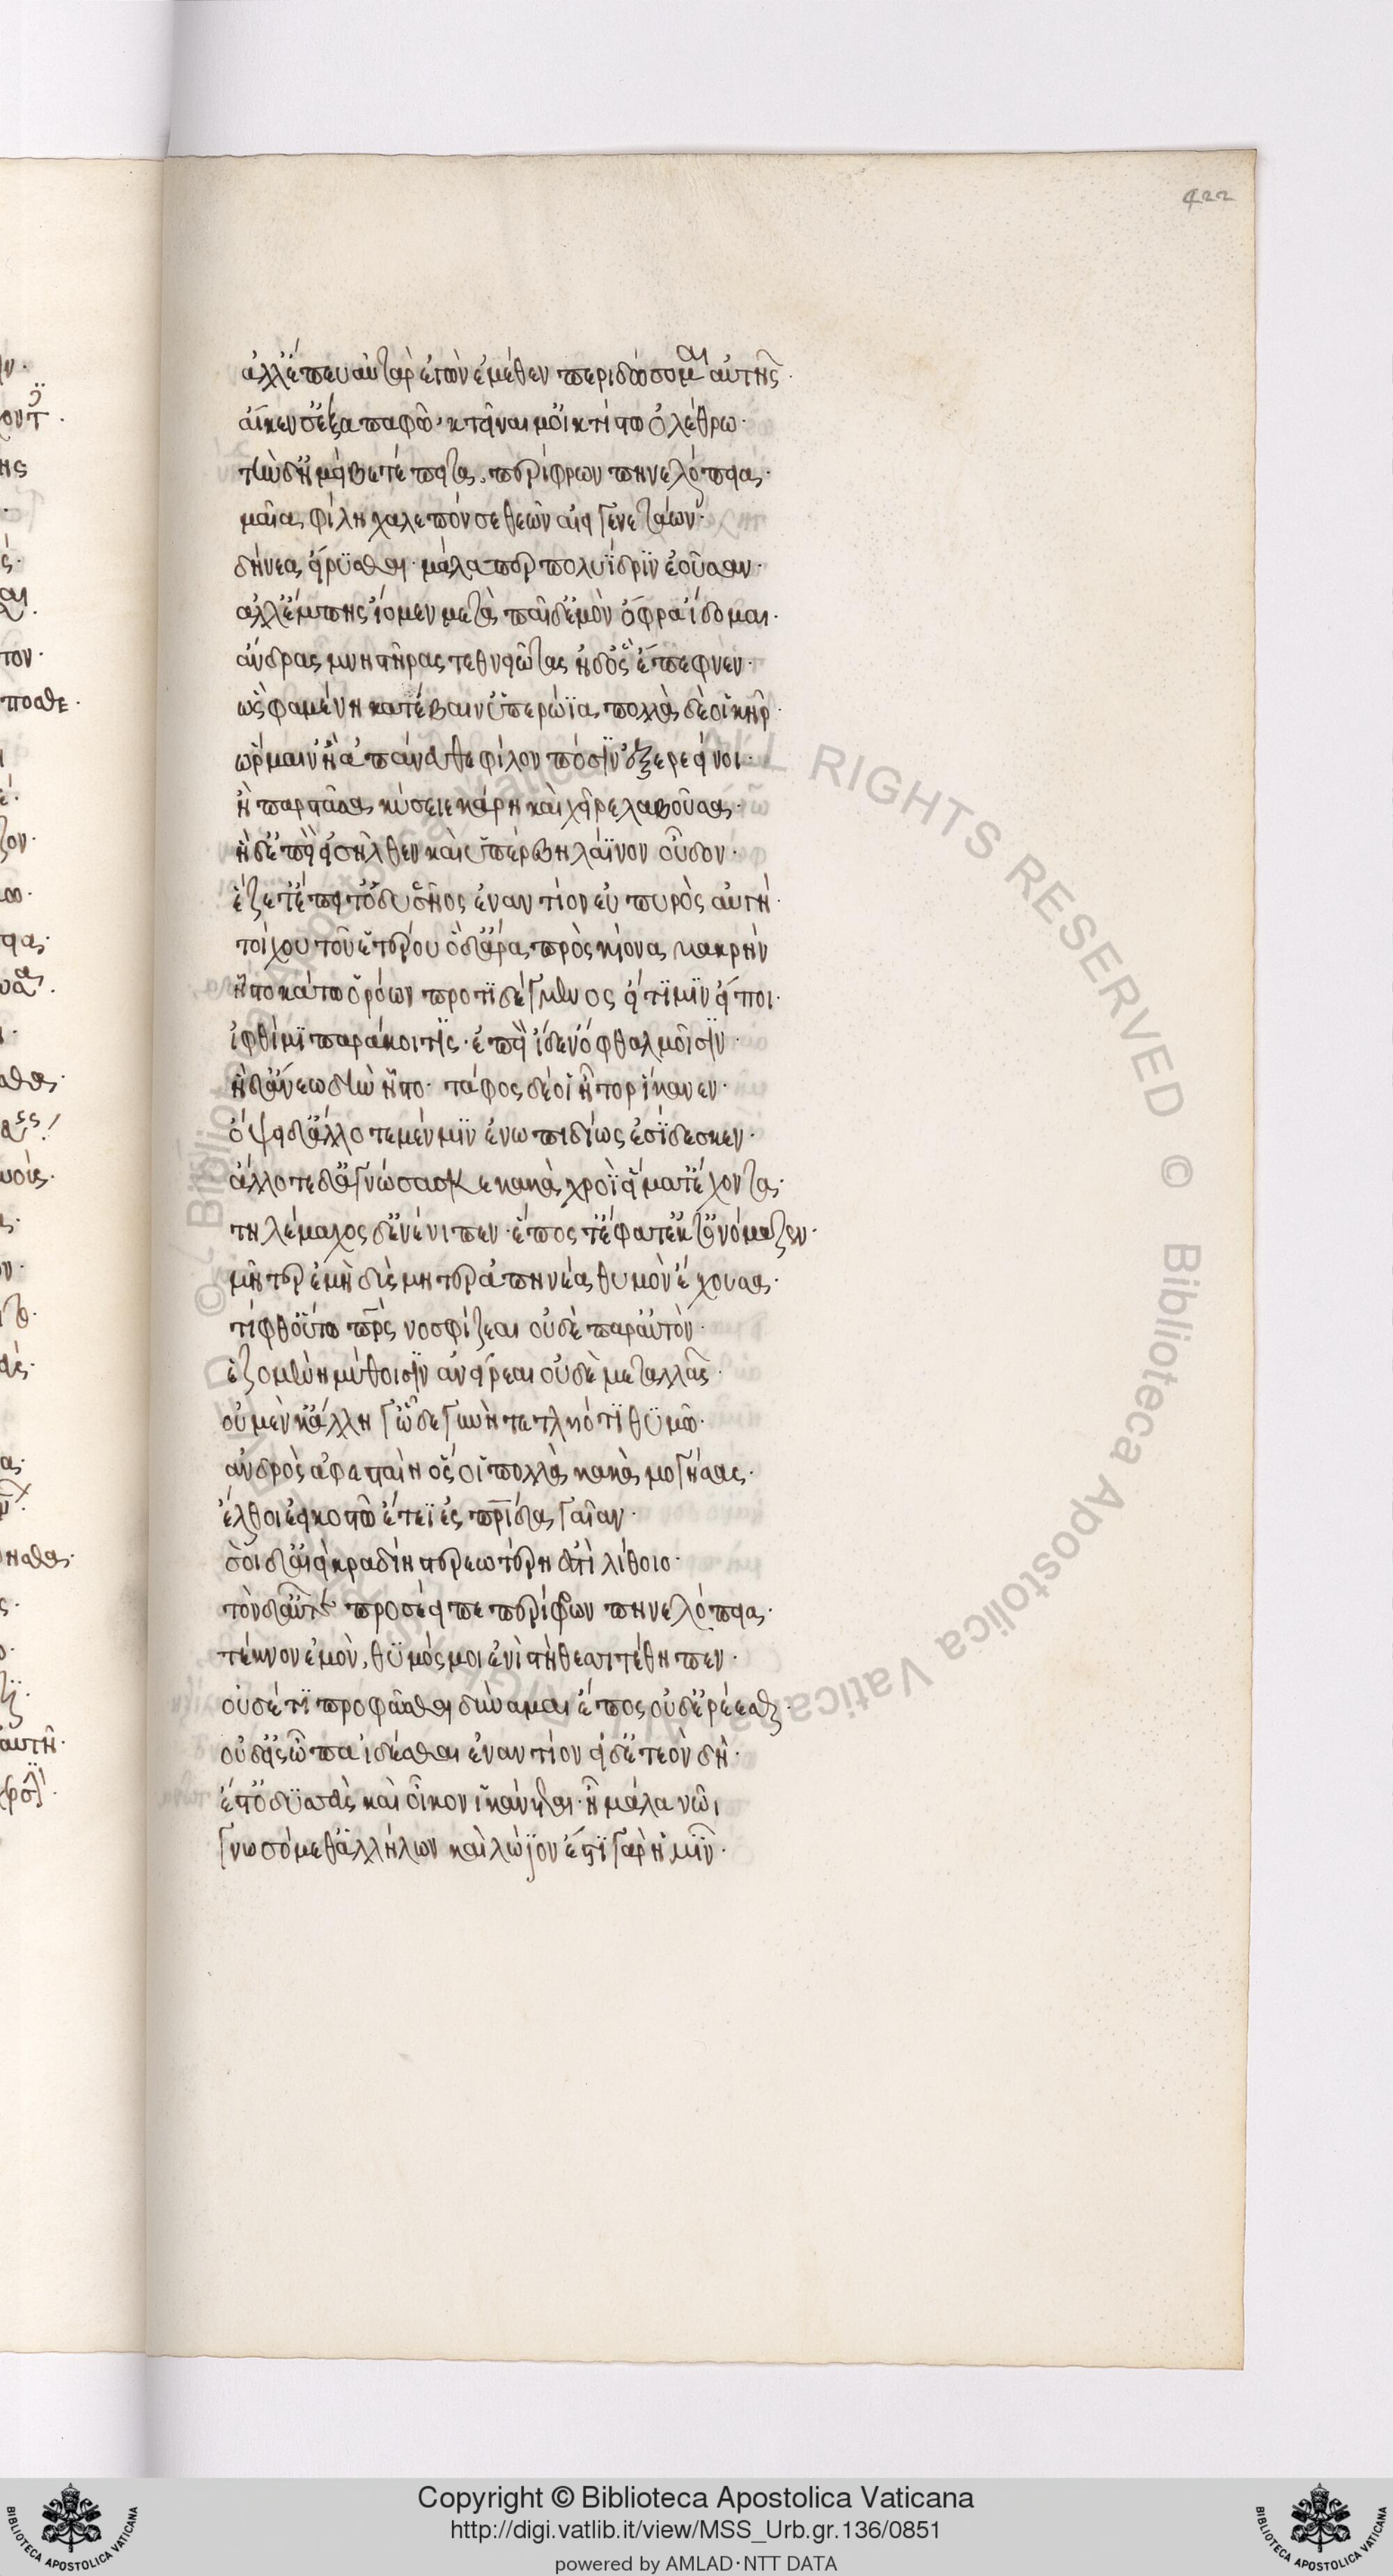 422
ἀλλ' ἕπευ αὐτὰρ ἐγὼν ἐμέθεν περιδώσομαι αὐτῆς·
αἴ κέν σ' ἐξαπάφω, κτεῖναί μ' οἰκτίστω ὀλέθρω·
τὴν δ' ἠμείβετ' ἔπειτα περίφρων πηνελόπεια·
μαῖα φίλη χαλεπόν σε θεῶν αἰειγενετάων
δήνεα εἴρυσθαι· μάλα περ πολύϊδριν ἐοῦσαν·
ἀλλ' ἔμπης ἴομεν μετὰ παῖδ' ἐμὸν ὄφρα ἴδωμαι·
ἄνδρας μνηστῆρας τεθνηῶτας ἠδ' ὃς ἔπεφνεν·
ὣς φαμένη κατέβαιν' ὑπερώϊα, πολλὰ δέ οἱ κῆρ
ὥρμαιν' ἢ ἀπάνευθε φίλον πόσιν ἐξερεείνοι·
ἢ παρστᾶσα κύσειε κάρη καὶ χεῖρε λαβοῦσα·
ἡ δ' ἐπεὶ εἰσῆλθεν καὶ ὑπέρβη λάϊνον οὐδόν·
ἕζετ' ἔπειτ' ὀδυσῆος ἐναντίον ἐν πυρὸς αὐγῆ·
τοίχου τοῦ ἑτέρου ὁ δ' ἄρα πρὸς κίονα μακρὴν
ἧστο κάτω ὁρόων ποτιδέγμενος εἴ τί μιν εἴποι·
ἰφθίμη παράκοιτις· ἐπεὶ ἴδεν ὀφθαλμοῖσιν·
ἡ δ' ἄνεω δὴν ἧστο· τάφος δέ οἱ ἦτορ ἵκανεν·
ὄψει δ' ἄλλοτε μέν μιν ἐνωπιδίως ἐσίδεσκεν·
ἄλλοτε δ' ἀγνώσασκε κακὰ χροῒ εἵματ' ἔχοντα·
τηλέμαχος δ' ἐνένιπεν· ἔπος τ' ἔφατ' ἔκ τ' ὀνόμαζεν·
μῆτερ ἐμὴ δύσμητερ ἀπηνέα θυμὸν ἔχουσα·
τίφθ' οὕτω πρς νοσφίζεαι οὐδὲ παρ' αὐτὸν·
ἑζομένη μύθοισιν ἀνείρεαι οὐδὲ μεταλλᾶς·
οὐ μέν κ' ἄλλη γ' ὧδε γυνὴ τετληότι θυμῶ·
ἀνδρὸς ἀφεσταίη ὅς οἱ κακὰ πολλὰ μογήσας·
ἔλθοι ἐεικοστῶ ἔτεϊ ἐς πρίδα γαῖαν·
σοὶ δ' αἰεὶ κραδίη στερεωτέρη ἐστὶ λίθοιο·
τὸν δ' αὖτε προσέειπε περίφρων πηνελόπεια·
τέκνον ἐμὸν, θυμός μοι ἐνὶ στήθεσσι τέθηπεν·
οὐδέ τι προσφάσθαι δύναμαι ἔπος οὐδ' ἐρέεσθαι
οὐδ' εἰς ὦπα ἰδέσθαι ἐναντίον εἰ δ' ἐτεὸν δὴ·
ἔστ' ὀδυσεὺς καὶ οἶκον ἱκάνεται· ἦ μάλα νῶϊ
γνωσόμεθ' ἀλλήλων καὶ λώϊον ἔστι γὰρ ἡμῖν·
Copyright © Biblioteca Apostolica Vaticana
http://digi.vatlib.it/view/MSS_Urb.gr.136/0851
powered by AMLAD·NTT DATA